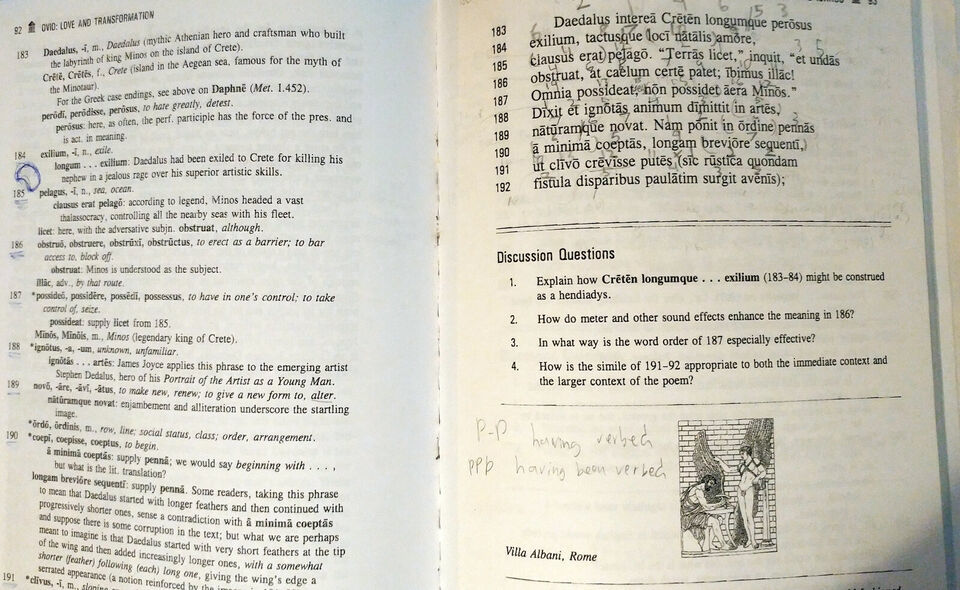 92 OVID: LOVE AND TRANSFORMATION
183 Daedalus, -ī, m., Daedalus (mythic Athenian hero and craftsman who built
the labyrinth of king Minos on the island of Crete).
Crētē, Crētēs, f., Crete (island in the Aegean sea, famous for the myth of
the Minotaur).
For the Greek case endings, see above on Daphnē (Met. 1.452).
perōdī, perōdisse, perōsus, to hate greatly, detest.
perōsus: here, as often, the perf. participle has the force of the pres. and
is act. in meaning.
184 exilium, -ī, n., exile.
longum . . . exilium: Daedalus had been exiled to Crete for killing his
nephew in a jealous rage over his superior artistic skills.
185 pelagus, -ī, n., sea, ocean.
clausus erat pelagō: according to legend, Minos headed a vast
thalassocracy, controlling all the nearby seas with his fleet.
licet: here, with the adversative subjn. obstruat, although.
186 obstruō, obstruere, obstrūxī, obstrūctus, to erect as a barrier; to bar
access to, block off.
obstruat: Minos is understood as the subject.
illāc, adv., by that route.
187 *possideō, possidēre, possēdī, possessus, to have in one's control; to take
control of, seize.
possideat: supply licet from 185.
Mīnōs, Mīnōis, m., Minos (legendary king of Crete).
188 *ignōtus, -a, -um, unknown, unfamiliar.
ignōtās . . . artēs: James Joyce applies this phrase to the emerging artist
Stephen Dedalus, hero of his Portrait of the Artist as a Young Man.
189 novō, -āre, -āvī, -ātus, to make new, renew; to give a new form to, alter.
nātūramque novat: enjambement and alliteration underscore the startling
image.
*ōrdō, ōrdinis, m., row, line; social status, class; order, arrangement.
190 *coepī, coepisse, coeptus, to begin.
ā minimā coeptās: supply pennā; we would say beginning with . . . ,
but what is the lit. translation?
longam breviōre sequentī: supply pennā. Some readers, taking this phrase
to mean that Daedalus started with longer feathers and then continued with
progressively shorter ones, sense a contradiction with ā minimā coeptās
and suppose there is some corruption in the text; but what we are perhaps
meant to imagine is that Daedalus started with very short feathers at the tip
of the wing and then added increasingly longer ones, with a somewhat
shorter (feather) following (each) long one, giving the wing's edge a
serrated appearance (a notion reinforced by the
191 *clīvus, -ī, m.,
93
183 Daedalus intereā Crētēn longumque perōsus
184 exilium, tactusque locī nātālis amōre,
185 clausus erat pelagō. “Terrās licet,” inquit, “et undās
186 obstruat, at caelum certē patet; ībimus illāc!
187 Omnia possideat, nōn possidet āera Mīnōs.”
188 Dīxit et ignōtās animum dīmittit in artēs,
189 nātūramque novat. Nam pōnit in ōrdine pennās
190 ā minimā coeptās, longam breviōre sequentī,
191 ut clīvō crēvisse putēs (sīc rūstica quondam
192 fistula disparibus paulātim surgit avēnīs);
Discussion Questions
1. Explain how Crētēn longumque . . . exilium (183–84) might be construed
as a hendiadys.
2. How do meter and other sound effects enhance the meaning in 186?
3. In what way is the word order of 187 especially effective?
4. How is the simile of 191–92 appropriate to both the immediate context and
the larger context of the poem?
P-P having verbed
PPP having been verbed
Villa Albani, Rome